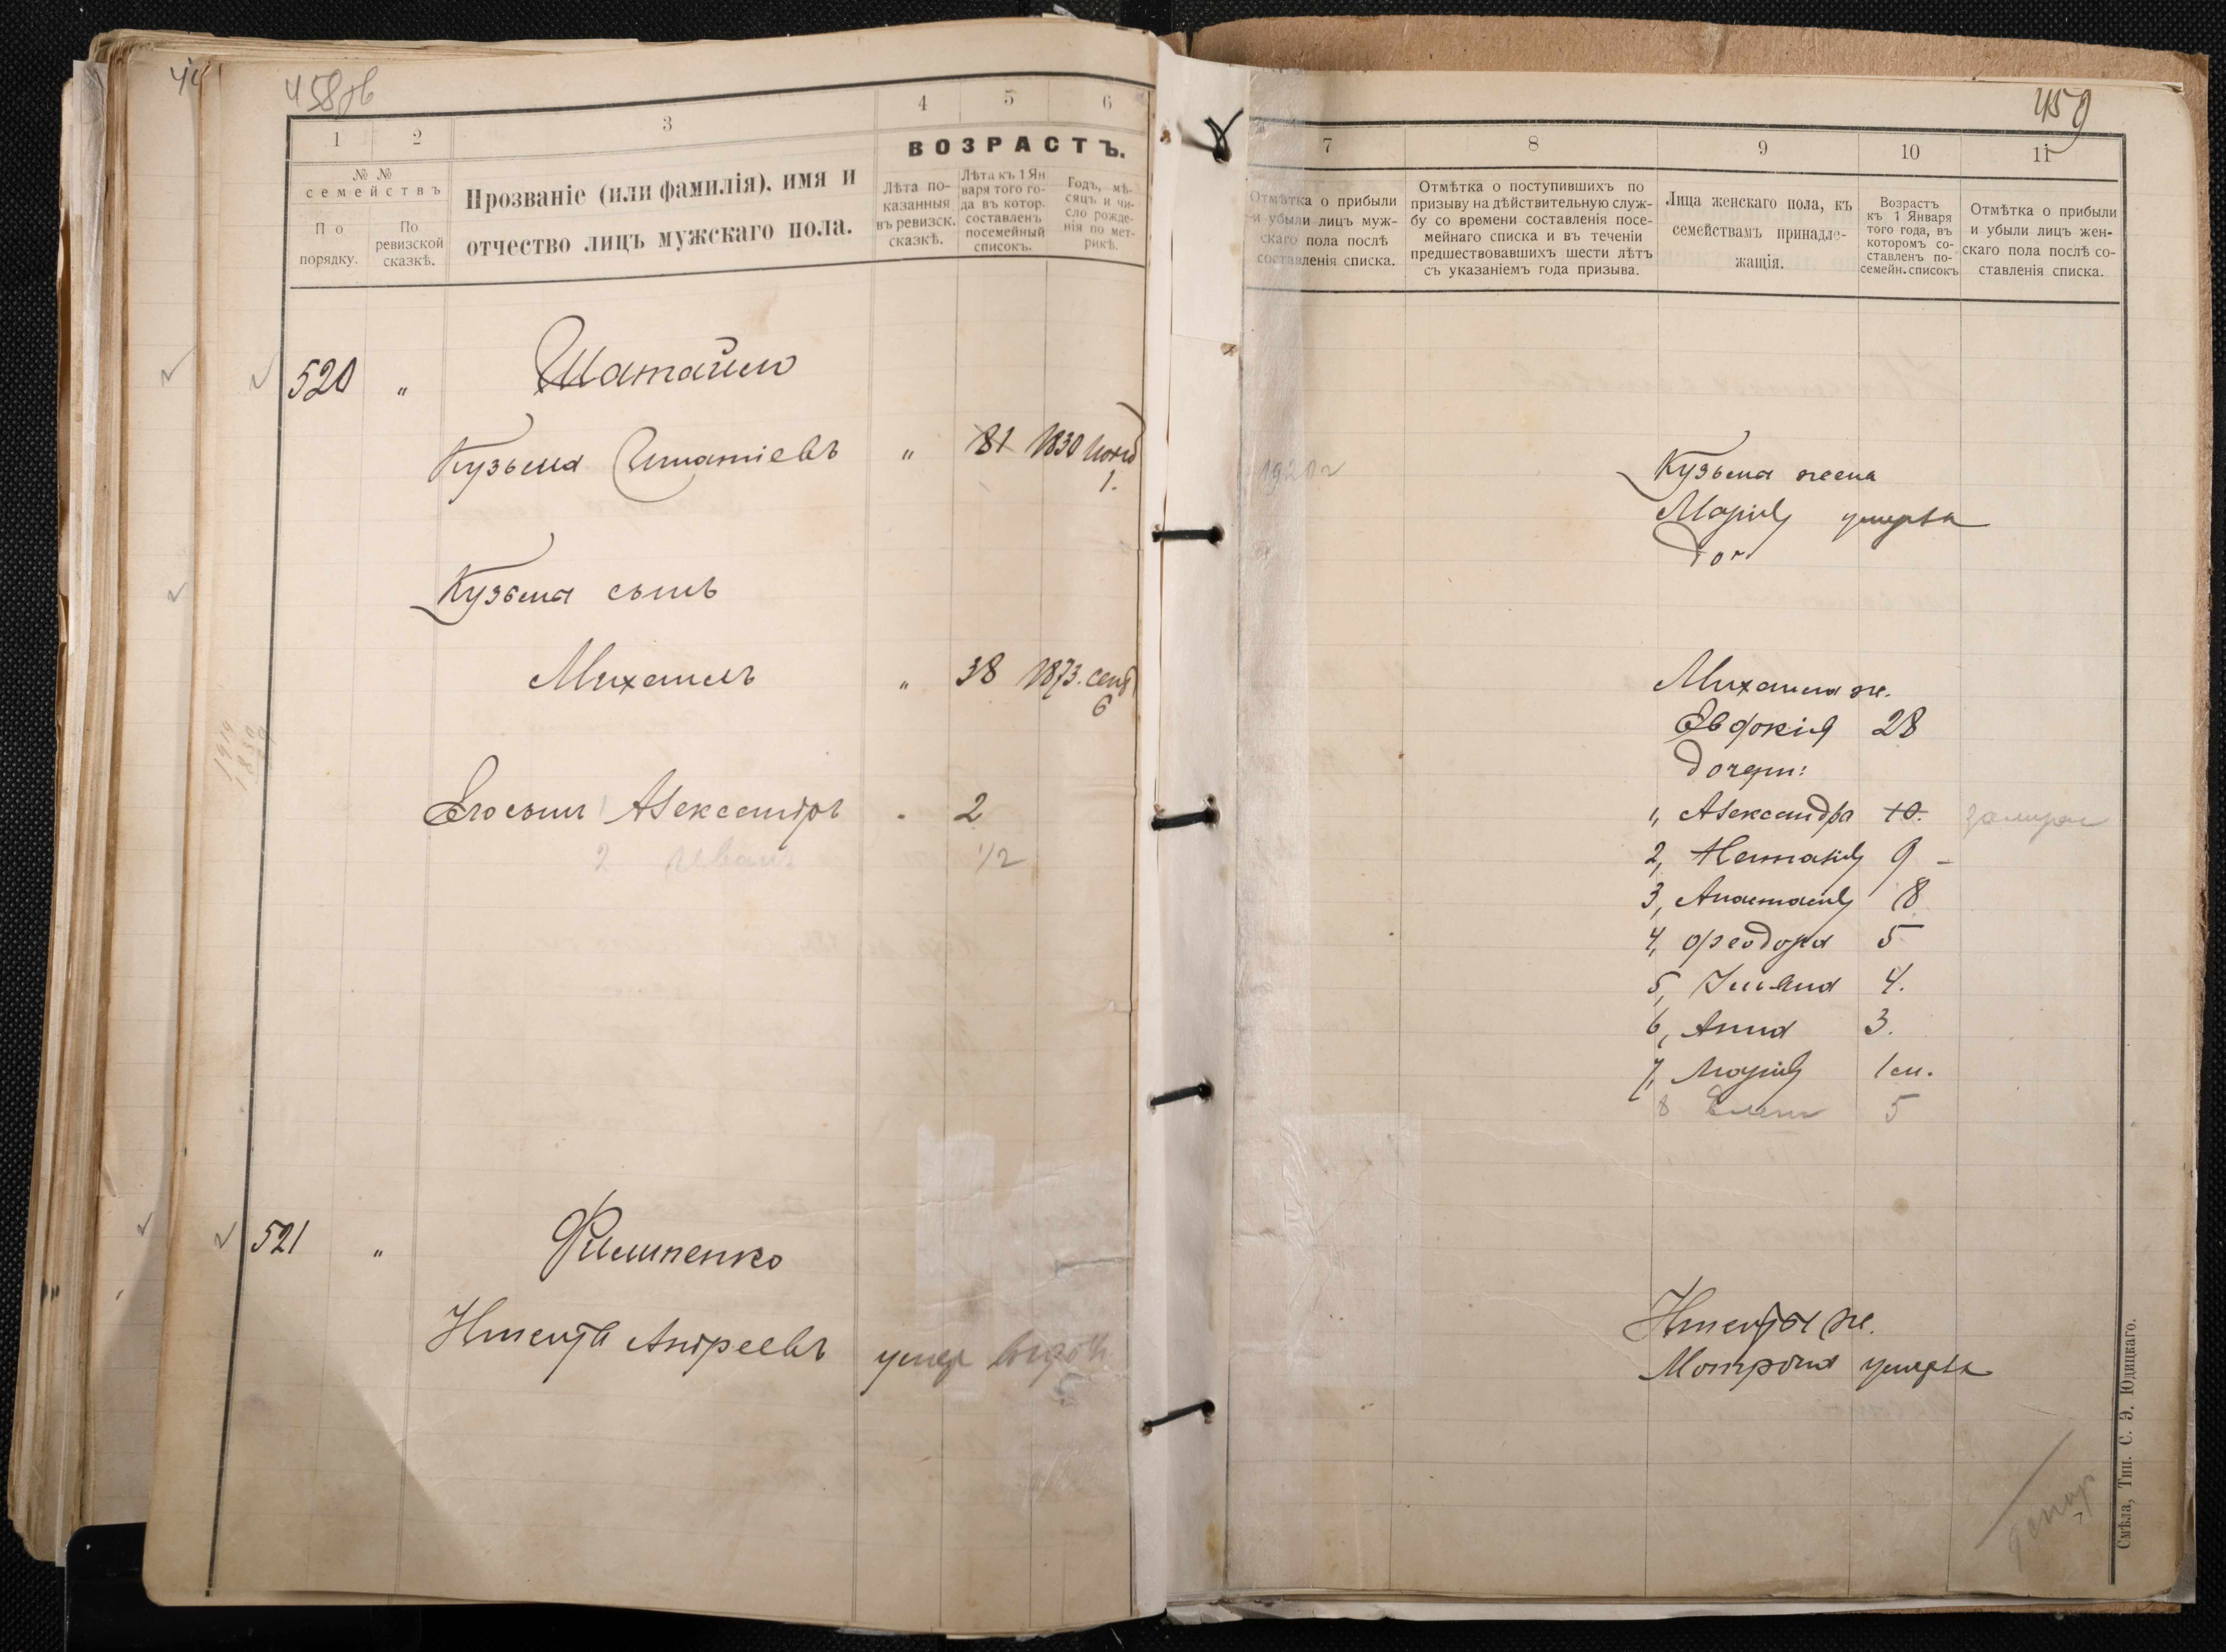 458об
1
2
3
4
5
6
№ №
семействъ
По порядку.
По ревизской сказкѣ.
Прозваніе (или фамилія), имя и
отчество лицъ мужскаго пола.
ВОЗРАСТЪ.
Лѣта по-
казанныя
въ ревизск.
сказкѣ.
Лѣта къ 1 Ян
варя того го-
да въ котор.
составленъ
посемейный
списокъ.
Годъ, мѣ-
сяцъ и чи-
сло рожде-
нія по мет-
рикѣ.
520 "
Шатайло
Кузьма Игнатіевъ " 81 1830 Нояб
1.
Кузьма сынъ
Михаилъ " 38 1873. Сент
6
Его сынъ 1 Александръ 2
2 Иванъ 1/2
1914
1830
521 "
Филипенко
Андреевъ умер
459
7
8
9
10
11
Отмѣтка о прибыли
и убыли лицъ муж-
скаго пола послѣ
составленія списка.
Отмѣтка о поступившихъ по
призыву на дѣйствительную служ-
бу со времени составленія посе-
мейнаго списка и въ теченіи
предшествовавшихъ шести лѣтъ
съ указаніемъ года призыва.
Лица женскаго пола, къ
семействамъ принадле-
жащія.
Возрастъ
къ 1 Января
того года, въ
которомъ со-
ставленъ по-
семейн. списокъ
Отмѣтка о прибыли
и убыли лицъ жен-
скаго пола послѣ со-
ставленія списка.
1920г
Кузьма жена
Марія умерла
доч
Михаила ж.
Евдокія 28
дочери:
1, Александра 10. замуж
2, Наталія 9 -
3, Анастасія 8
4, Феодора 5
5, Ульяна 4.
6, Анна 3.
7, Марія 1 м.
8 Елена 5
ж.
Мотрона умерла
Смѣла, Тип. С. Э. Юдицкаго.